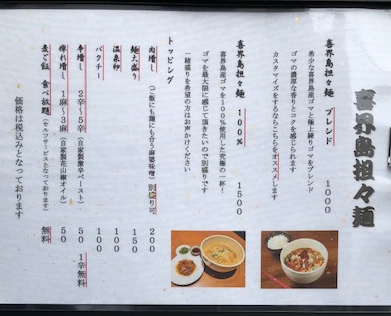 喜界島担々麺
喜界島担々麺 ブレンド 1000
希少な喜界島産ゴマと極上練りゴマをブレンド
ゴマの濃厚な香りとコクを感じられます
カスタマイズをするならこちらをオススメします
喜界島担々麺 100% 1500
喜界島産ゴマを100%使用した究極の一杯!
ゴマを最大限に感じて頂きたいので別盛りです
一緒盛りを希望の方はお声かけください
トッピング
肉増し (ご飯にも麺にも合う麻婆味噌) 別盛り可 200
麺大盛り 150
温泉卵 100
パクチー 100
辛増し 2辛〜5辛 (自家製激辛ペースト) 50 1辛無料
痺れ増し 1麻〜3麻 (自家製花山椒オイル) 50
麦ご飯 食べ放題 (セルフサービスとなっております) 無料
価格は税込みとなっております